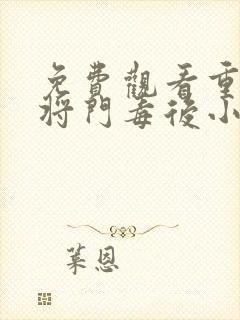 免費觀看重
將門毒後小
葉恩